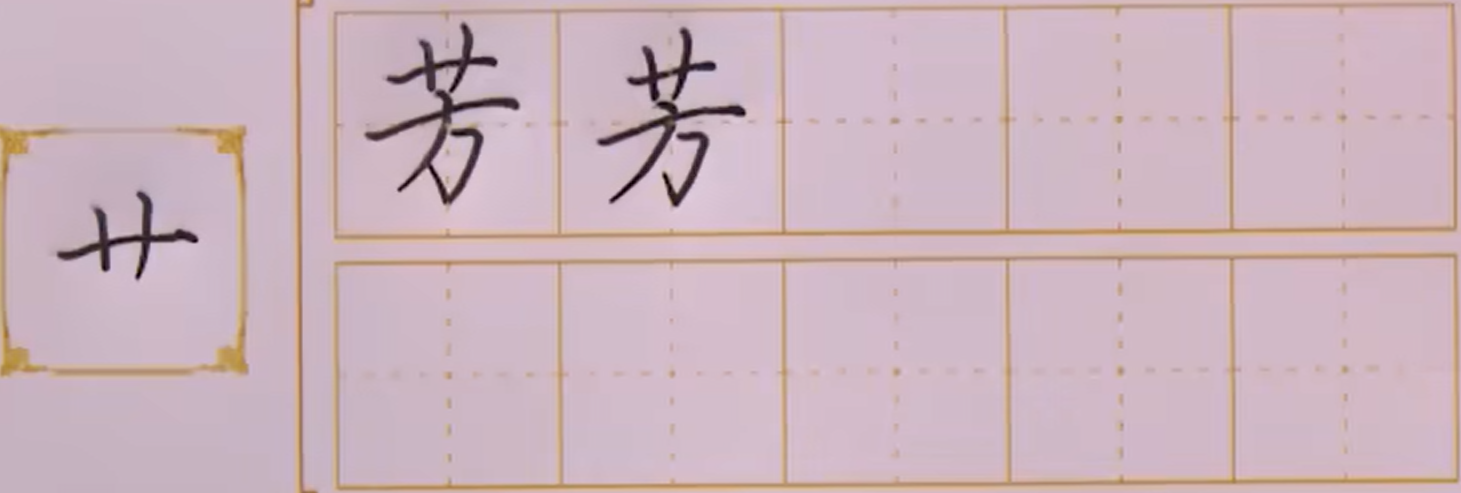 艹
芳芳